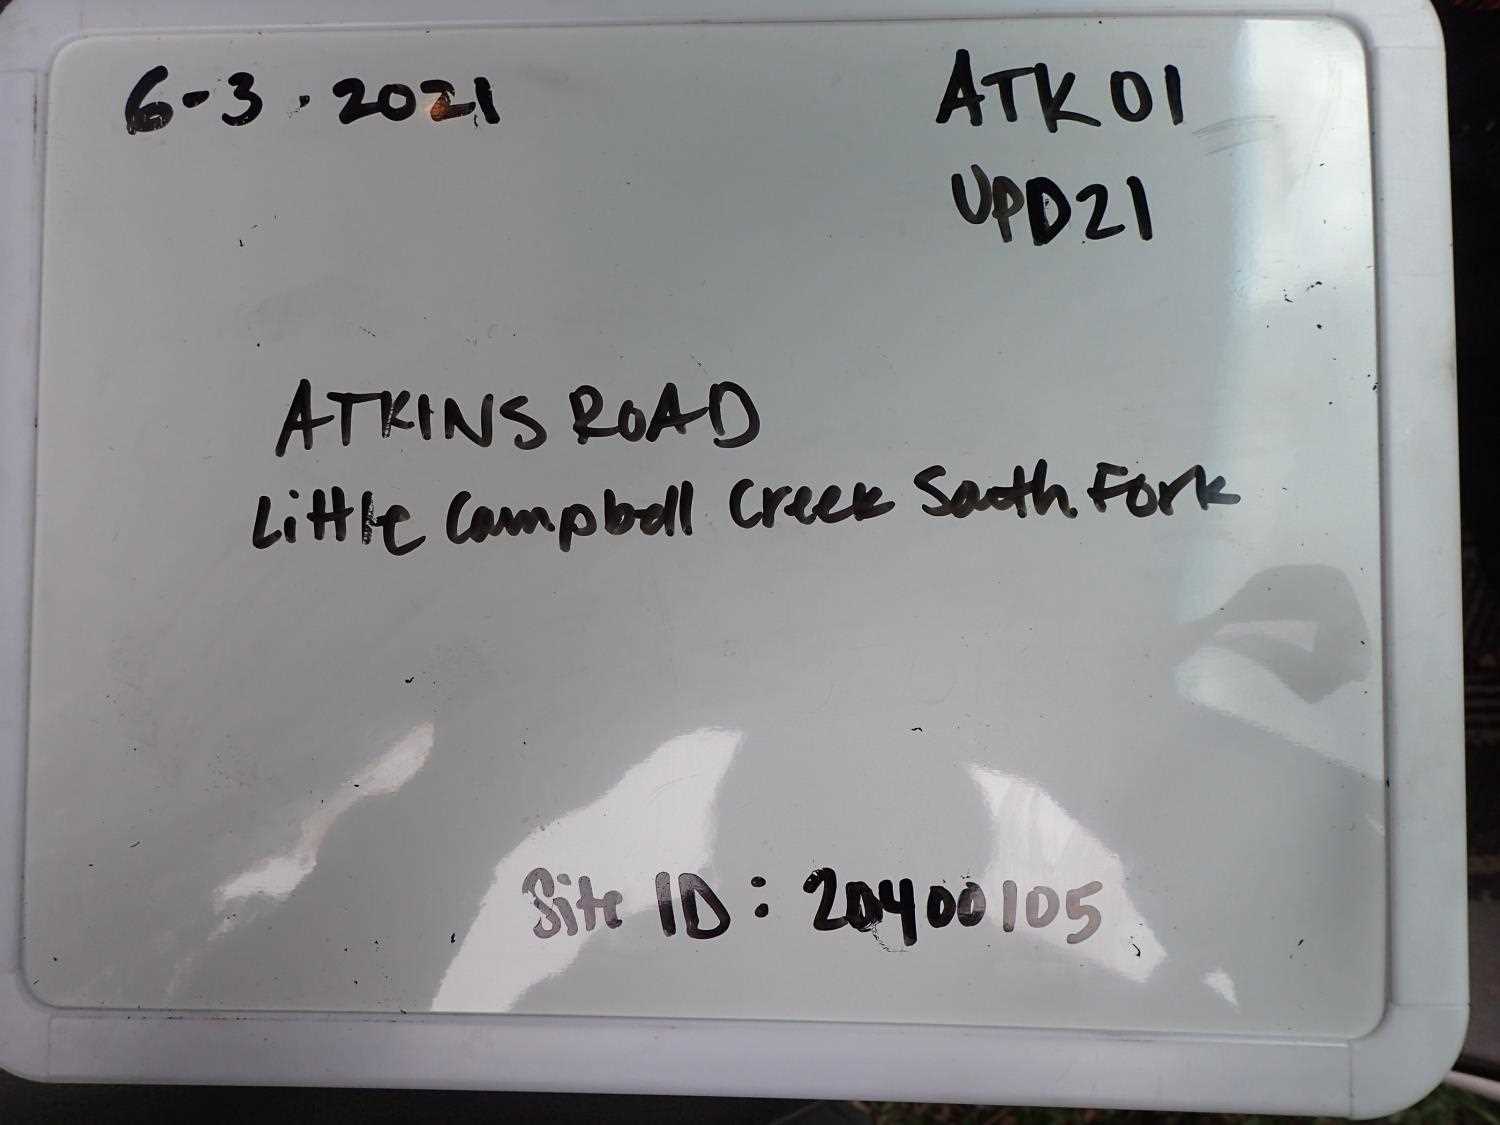 6-3.2021
ATK01
UPD21
ATKINS ROAD
Little Campbell Creek South Fork
Site ID: 20400105